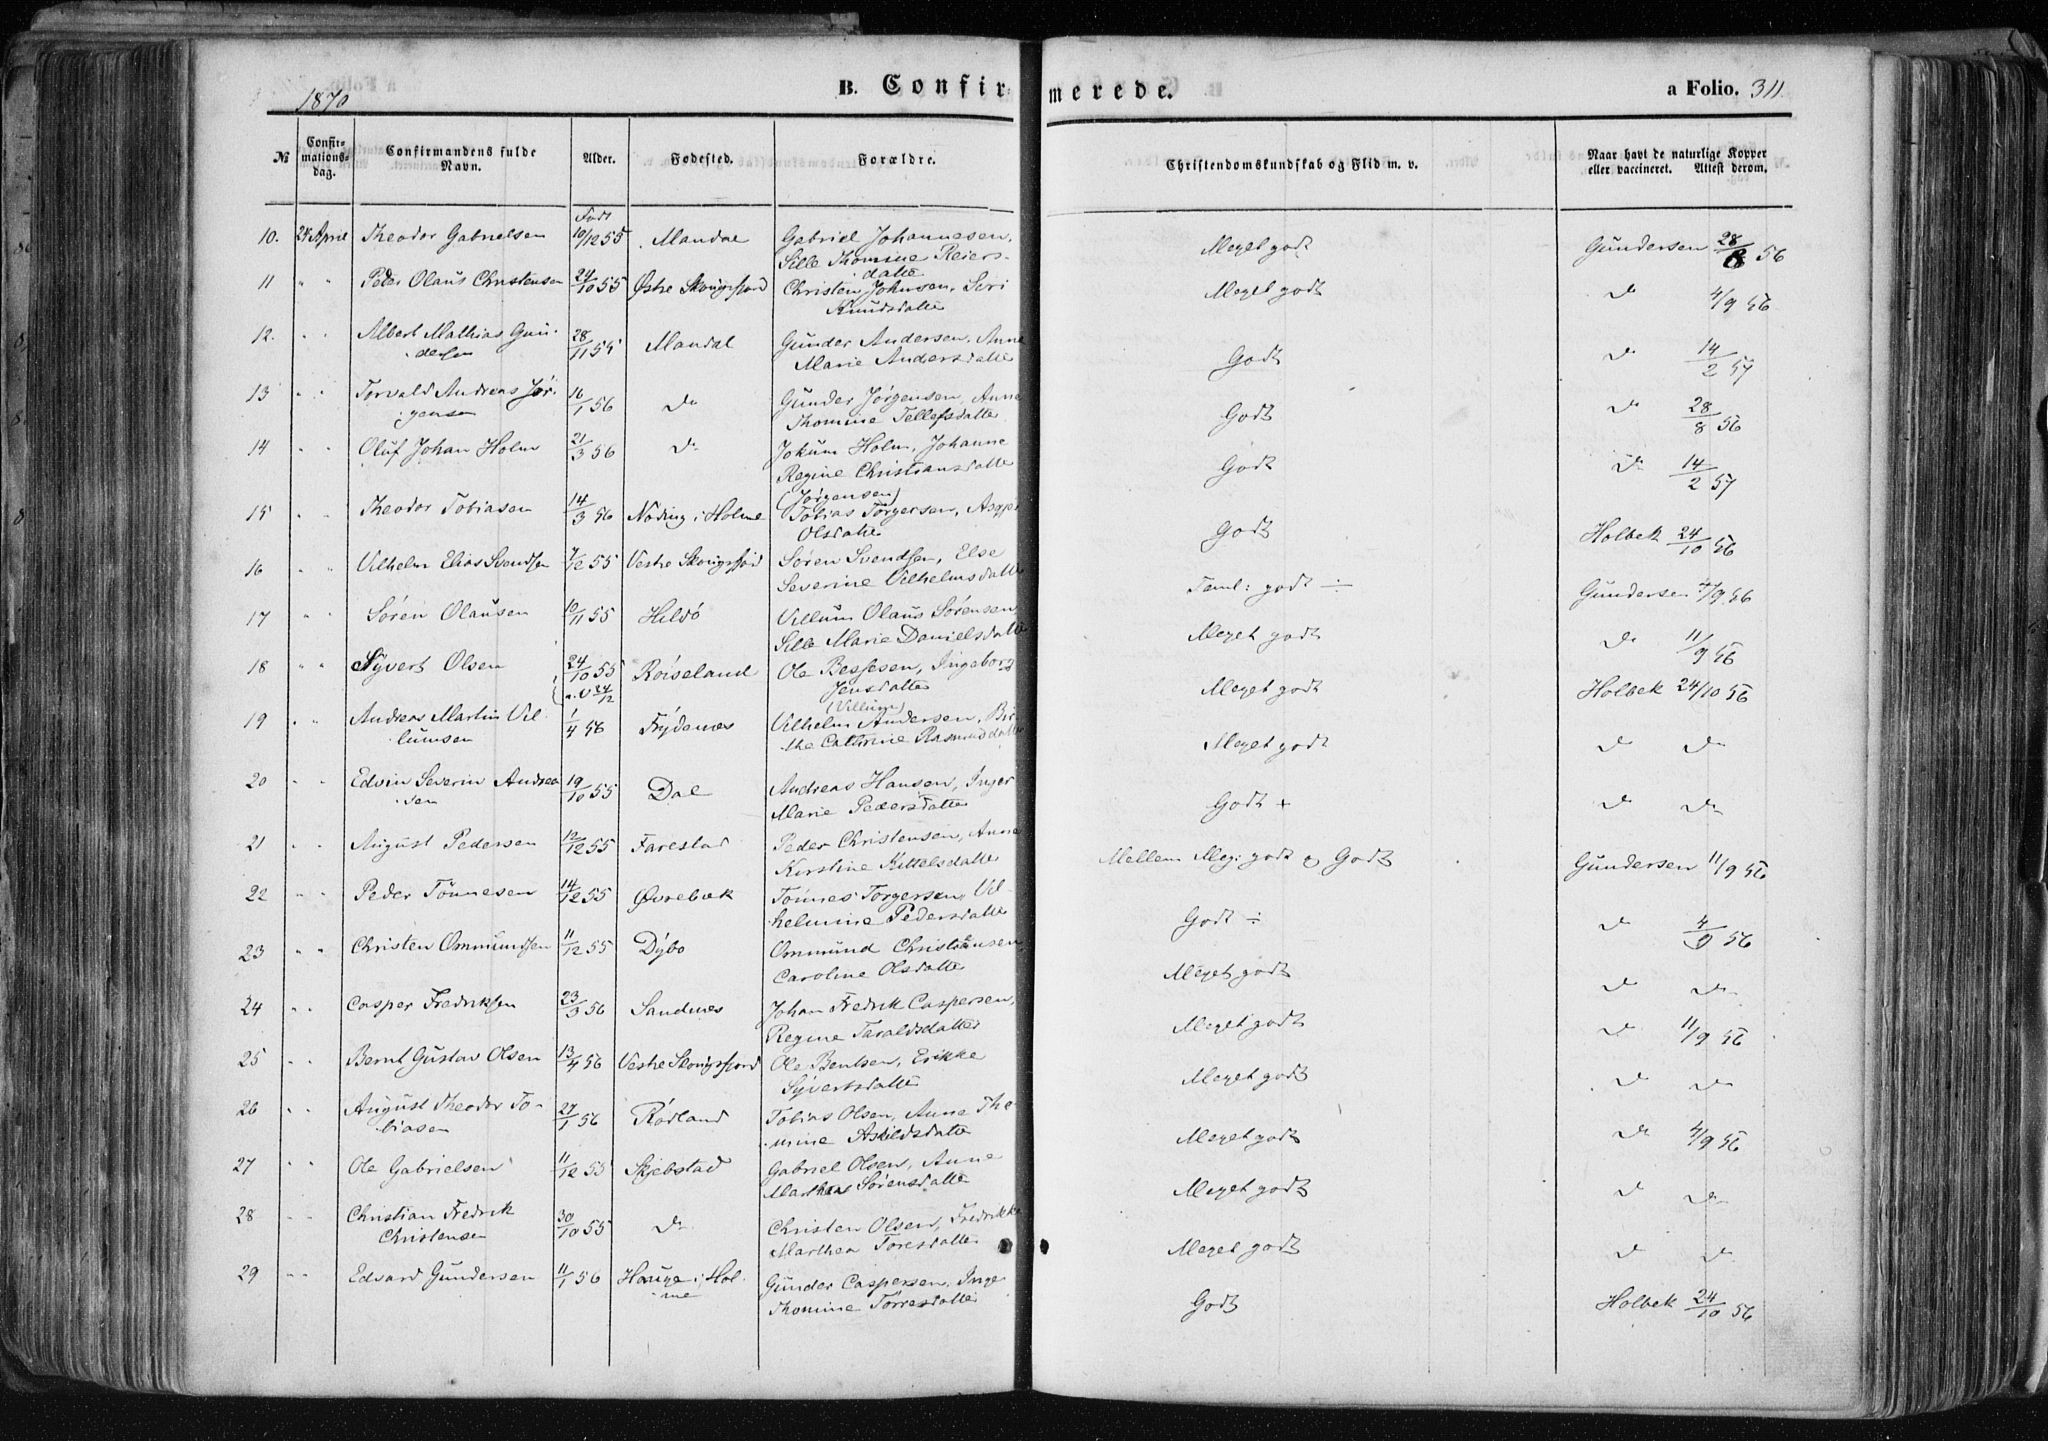 1870 B. Confirmerede. a Folio. 311.
№ Confirmationsdag. Confirmandens fulde Navn. Alder. Fødested. Forældre. Christendomskundskab og Flid m. v. Naar havt de naturlige Kopper eller vaccineret. Attest derom.
Født
10. 24 April Theodor Gabrielsen 10/12 55 Mandal Gabriel Johannesen, Meget godt Gundersen 28/8 56
Sille Thomine Reiers-
datter
11 " " Peder Olaus Christensen 24/10 55 Østre Skougsfjord Christen Johnsen, Siri Meget godt do 4/9 56
Knudsdatter
12. " " Albert Mathias Gun- 28/11 55 Mandal Gunder Andersen, Anne Godt do 14/2 57
dersen Marie Andersdatter
13 " " Torvald Andreas Jør- 16/1 56 do Gunder Jørgensen, Anne Godt do 28/8 56
gensen Thomine Tellefsdatter
14 " " Oluf Johan Holm 21/3 56 do Jokum Holm, Johanne Godt do 14/2 57
Regine Christiansdatter
(Jørgensen)
15 " " Theodor Tobiasen 14/3 56 Nøding i Holme Tobias Törgersen, Godt Holbek 24/10 56
Olsdatter
16 " " Vilhelm Elias Svendsen 7/12 55 Vestre Skougsfjord Søren Svendsen, Else Teml: godt ÷ Gundersen 4/9 56
Severine Vilhelmsdatter
17 " " Søren Olausen 10/11 55 Hildö Villum Olaus Sørensen Meget godt do 11/9 56
Sille Marie Danielsdatter
18 " " Syvert Olsen 24/10 55 Röiseland Ole Bessesen, Ingeborg Meget godt Holbek 24/10 56
Jensdatter
(Villum)
19 " " Andreas Martin Vil- 1/4 56 Frydenes Vilhelm Andersen, Bir- Meget godt do do
lumsen the Cathrine Rasmusdatter
20 " " Edvin Severin Andrea- 19/10 55 Dal Andreas Hansen, Inger Godt + do do
sen Marie Pedersdatter
21 " " August Pedersen 12/12 55 Farestad Peder Christensen, Anne Mellem Meg: godt og Godt Gundersen 11/9 56
Kirstine Kittelsdatter
22 " " Peder Tönnesen 14/12 55 Øvrebæk Tönnes Torgersen, Vil- Godt ÷ do 4/9 56
helmine Pedersdatter
23 " " Christen Ommundsen 11/12 55 Dybo Ommund Christensen Meget godt do do
Caroline Olsdatter
24 " " Casper Fredriksen 23/3 56 Sandnes Johan Fredrik Caspersen, Meget godt do 11/9 56
Regine Taraldsdatter
25 " " Bernt Gustav Olsen 13/4 56 Vestre Skougsfjord Ole Bentsen, Erikke Meget godt do do
Syvertsdatter
26 " " August Theodor To- 27/1 56 Rödland Tobias Olsen, Anne Tho- Meget godt do 4/9 56
biasen mine Askildsdatter
27 " " Ole Gabrielsen 11/12 55 Skjebstad Gabriel Olsen, Anne Meget godt do do
Marthea Sørensdatter
28 " " Christian Fredrik 30/10 55 do Christen Olsen, Fredrikke Meget godt do do
Christensen Marthea Toresdatter
29 " " Edvard Gundersen 11/1 56 Hauge i Hol- Gunder Caspersen, Inge Godt Holbek 24/10 56
me Thomine Torresdatter